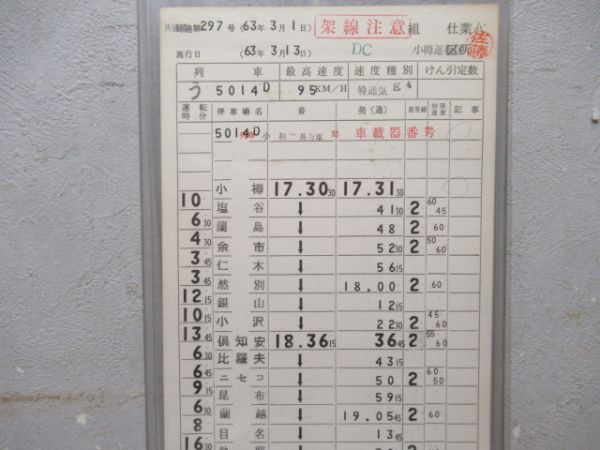 297号 (63年3月1日) 架線注意 組 仕業
施行日 (63年3月13日) DC 小樽運
列 車 最高速度 速度種別 けん引定数
5014D 95KM/H 特通気
運転時分 停車場名 着 発(通) 着発線 制限速度 記事
5014D 小樽〜長万部間 車載器番号
小樽 17.30 30 17.31 30
10 塩谷 ↓ 41 30 2 60 45
6 30 蘭島 ↓ 48 2 60
4 30 余市 ↓ 52 30 2 50 60
3 45 仁木 ↓ 56 15
3 45 然別 ↓ 18.00 2 60
12 15 銀山 ↓ 12 15
10 15 小沢 ↓ 22 30 2 45 60
13 45 倶知安 18.36 15 36 45 2 55 60
6 30 比羅夫 ↓ 43 15
6 45 ニセコ ↓ 50 2 60 50
9 15 昆布 ↓ 59 15
6 30 蘭越 ↓ 19.05 45 2 60
8 目名 ↓ 13 45
16 30